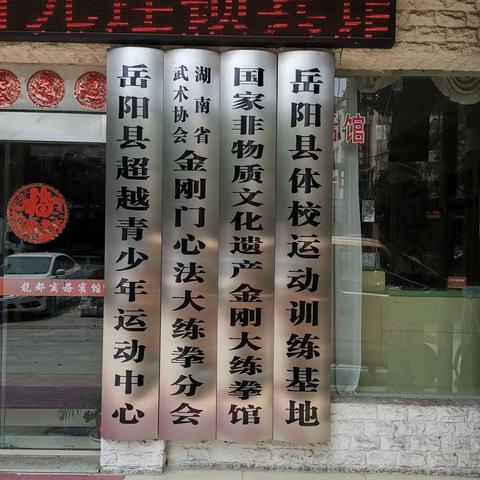 岳阳县超越青少年运动中心
湖南省武术协会金刚门心法大练拳分会
国家非物质文化遗产金刚大练拳馆
岳阳县体校运动训练基地
龙都商务宾馆
馆